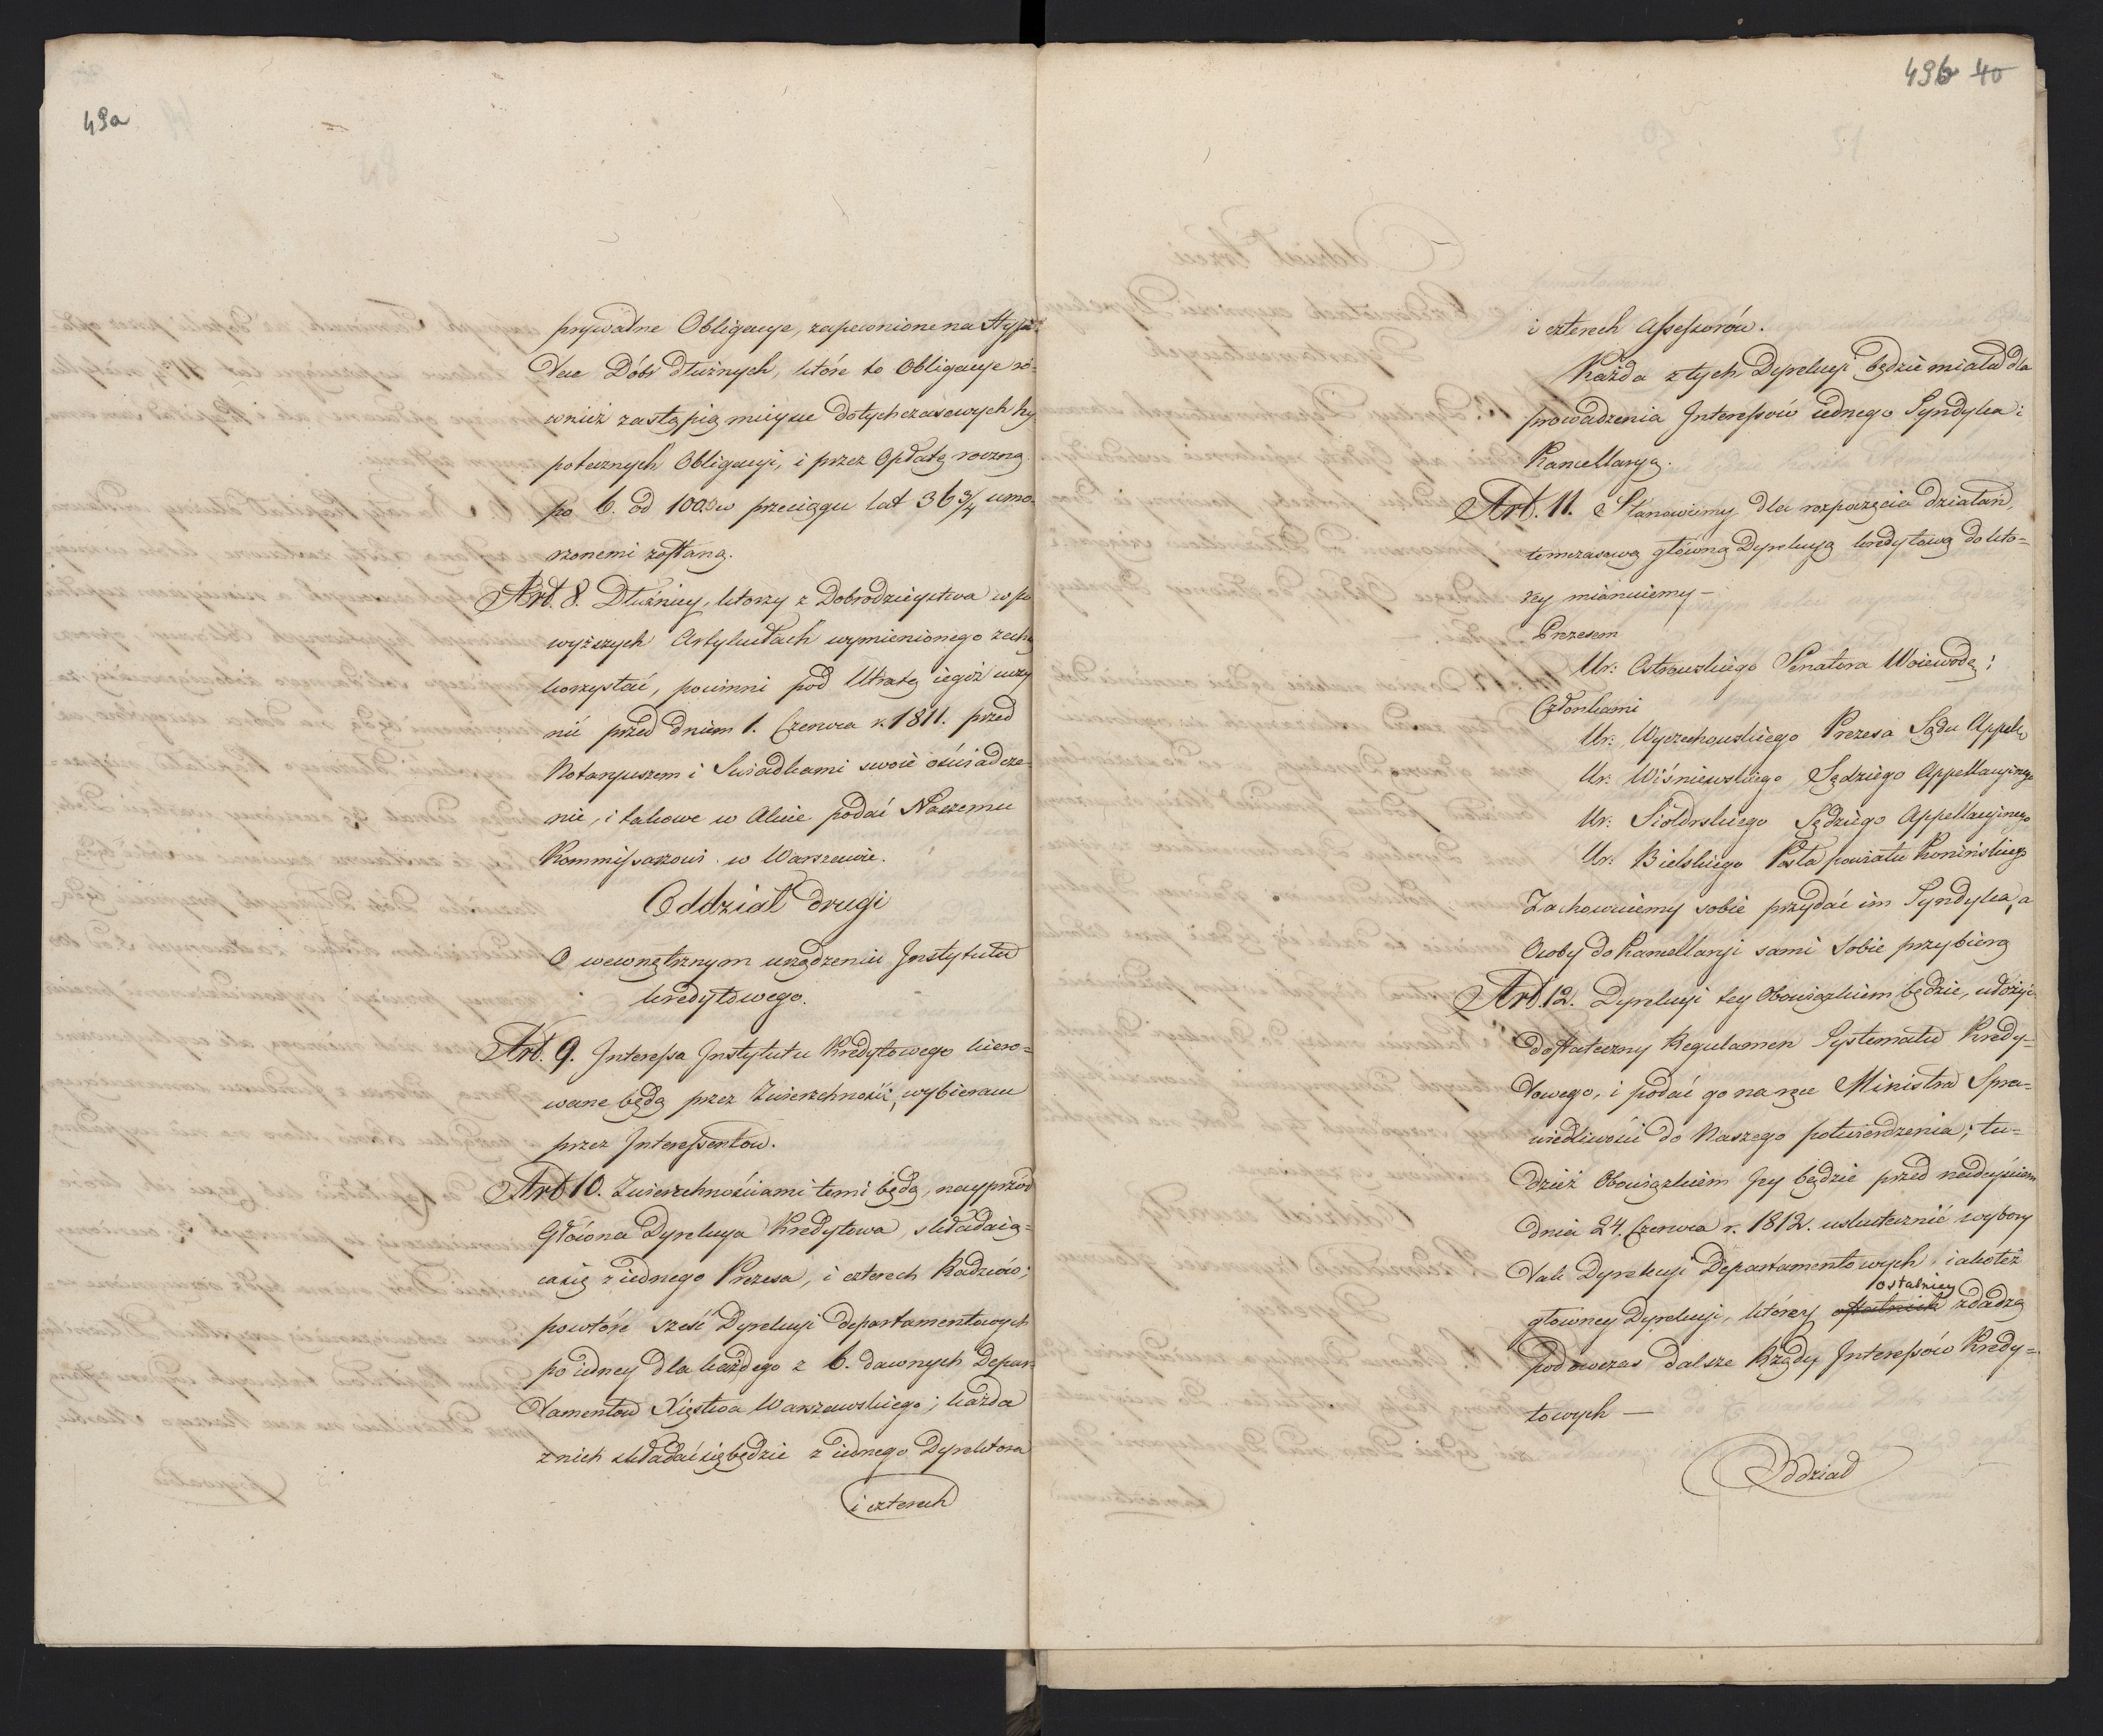 49a
prywatne Obligacye, zapewnione na Hypo=
tece Dóbr dłużnych, które to Obligacye ró=
wnież zastąpią mieysce dotychczasowych hy
potecznych Obligacyi, i przez Opłatę roczną
po 6. od 100. w przeciągu lat 36 3/4 umo=
rzonemi zostaną.
Art. 8. Dłużnicy, ktorzy z Dobrodzieystwa w po
wyższych Artykułach wymienionego zechcą
korzystać, powinni pod Utratą iegoż uczy
nić przed dniem 1. Czerwca r. 1811. przed
Notaryuszem i Swiadkami swoie oświadcze=
nie, i takowe w Akcie podać Naszemu
Kommissarzowi w Warszawie.
Oddział drugi
O wewnętrznym urządzeniu Jnstytutu
kredytowego.
Art. 9. Jnteressa Jnstytutu Kredytowego kiero=
wane będą przez Zwierzchności, wybierane
przez Jnteressentow.
Art 10. Zwierzchnościami temi będą, nayprzód
Główna Dyrekcya Kredytowa, składaią=
ca się z iednego Prezesa, i czterech Radzców;
powtóre sześć Dyrekcyi departamentowych
po iedney dla każdego z 6. dawnych Depar=
tamentow Xięstwa Warszawskiego; każda
z nich składać się będzie z iednego Dyrektora
i czterech
49b 40
i czterech Assessorów.
Każda z tych Dyrekcyi będzie miała dla
prowadzenia Jnteressów iednego Syndyka i
Kancellaryą.
Art. 11. Stanowiemy dla rozpoczęcia działań,
temczasową główną Dyrekcyą kredytową do któ=
rey mianuiemy –
Prezesem
Ur: Ostrowskiego Senatora Woiewodę;
Członkami
Ur: Wyczechowskiego Prezesa Sądu Appel:
Ur: Wiśniewskiego Sędziego Appellacyinego
Ur: Sędziego Appellacyinego
Ur: Bielskiego Posła powiatu Konińskiego
Zachowuiemy sobie przydać im Syndyka, a
Osoby do Kancellaryi sami sobie przybiorą
Art. 12. Dyrekcyi tey Obowiązkiem będzie, ułożyć
dostateczny Regulamen Systematu Kredy=
towego, i podać go na ręce Ministra Spra=
wiedliwości do Naszego potwierdzenia; tu=
dzież Obowiązkiem Jey będzie przed nadeyściem
dnia 24. Czerwca r. 1812. uskutecznić wybory
tak Dyrekcyi Departamentowych iakoteż
ostatniey
głowney Dyrekcyi, którey zdadzą
podowczas dalsze Rządy Jnteressów Kredy=
towych —
Oddział